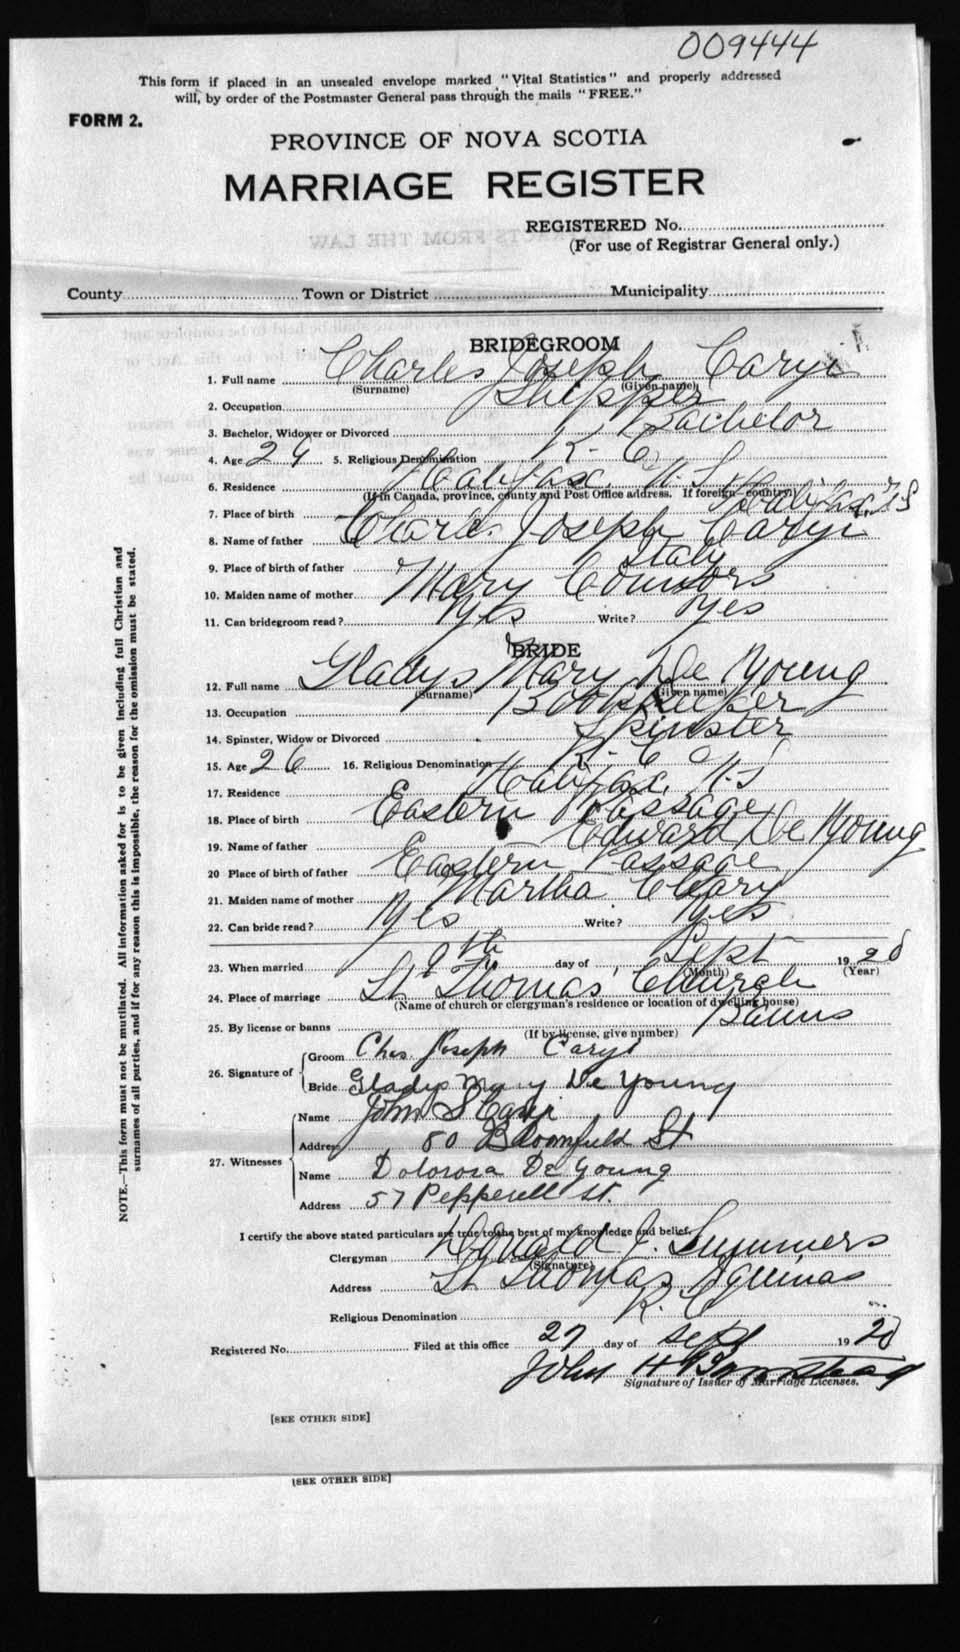 009444
This form if placed in an unsealed envelope marked "Vital Statistics" and properly addressed
will, by order of the Postmaster General pass through the mails "FREE."
FORM 2.
PROVINCE OF NOVA SCOTIA
MARRIAGE REGISTER
REGISTERED No.
(For use of Registrar General only.)
County Town or District Municipality
BRIDEGROOM
1. Full name Charles Joseph Caryi
(Surname) (Given name)
2. Occupation Shipper
3. Bachelor, Widower or Divorced Bachelor
4. Age 29 5. Religious Denomination R. C.
6. Residence Halifax, N.S.
(If in Canada, province, county and Post Office address. If foreign—country.)
7. Place of birth Halifax, N.S
8. Name of father Charles Joseph Caryi
9. Place of birth of father Italy
10. Maiden name of mother Mary Connors
11. Can bridegroom read? Yes Write? Yes
BRIDE
12. Full name Gladys Mary De Young
(Surname) (Given name)
13. Occupation Bookkeeper
14. Spinster, Widow or Divorced Spinster
15. Age 26 16. Religious Denomination R. C.
17. Residence Halifax, N.S
18. Place of birth Eastern Passage
19. Name of father Edward De Young
20 Place of birth of father Eastern Passage
21. Maiden name of mother Martha Cleary
22. Can bride read? Yes Write? Yes
23. When married 9th day of Sept 1920
(Month) (Year)
24. Place of marriage St Thomas' Church
(Name of church or clergyman's residence or location of dwelling house)
25. By license or banns Banns
(If by license, give number)
26. Signature of Groom Chas. Joseph Caryi
Bride Gladys Mary De Young
27. Witnesses Name John S Caryi
Address 80 Bloomfield St
Name Dolorosa De Young
Address 57 Pepperell St.
I certify the above stated particulars are true to the best of my knowledge and belief.
Clergyman Donald J. Summers
(Signature)
Address St Thomas Aquinas
Religious Denomination R. C
Registered No. Filed at this office 27 day of Sept 1920
John H
Signature of Issuer of Marriage Licenses.
[SEE OTHER SIDE]
[SEE OTHER SIDE]
NOTE.—This form must not be mutilated. All information asked for is to be given including full Christian and
surnames of all parties, and if for any reason this is impossible, the reason for the emission must be stated.